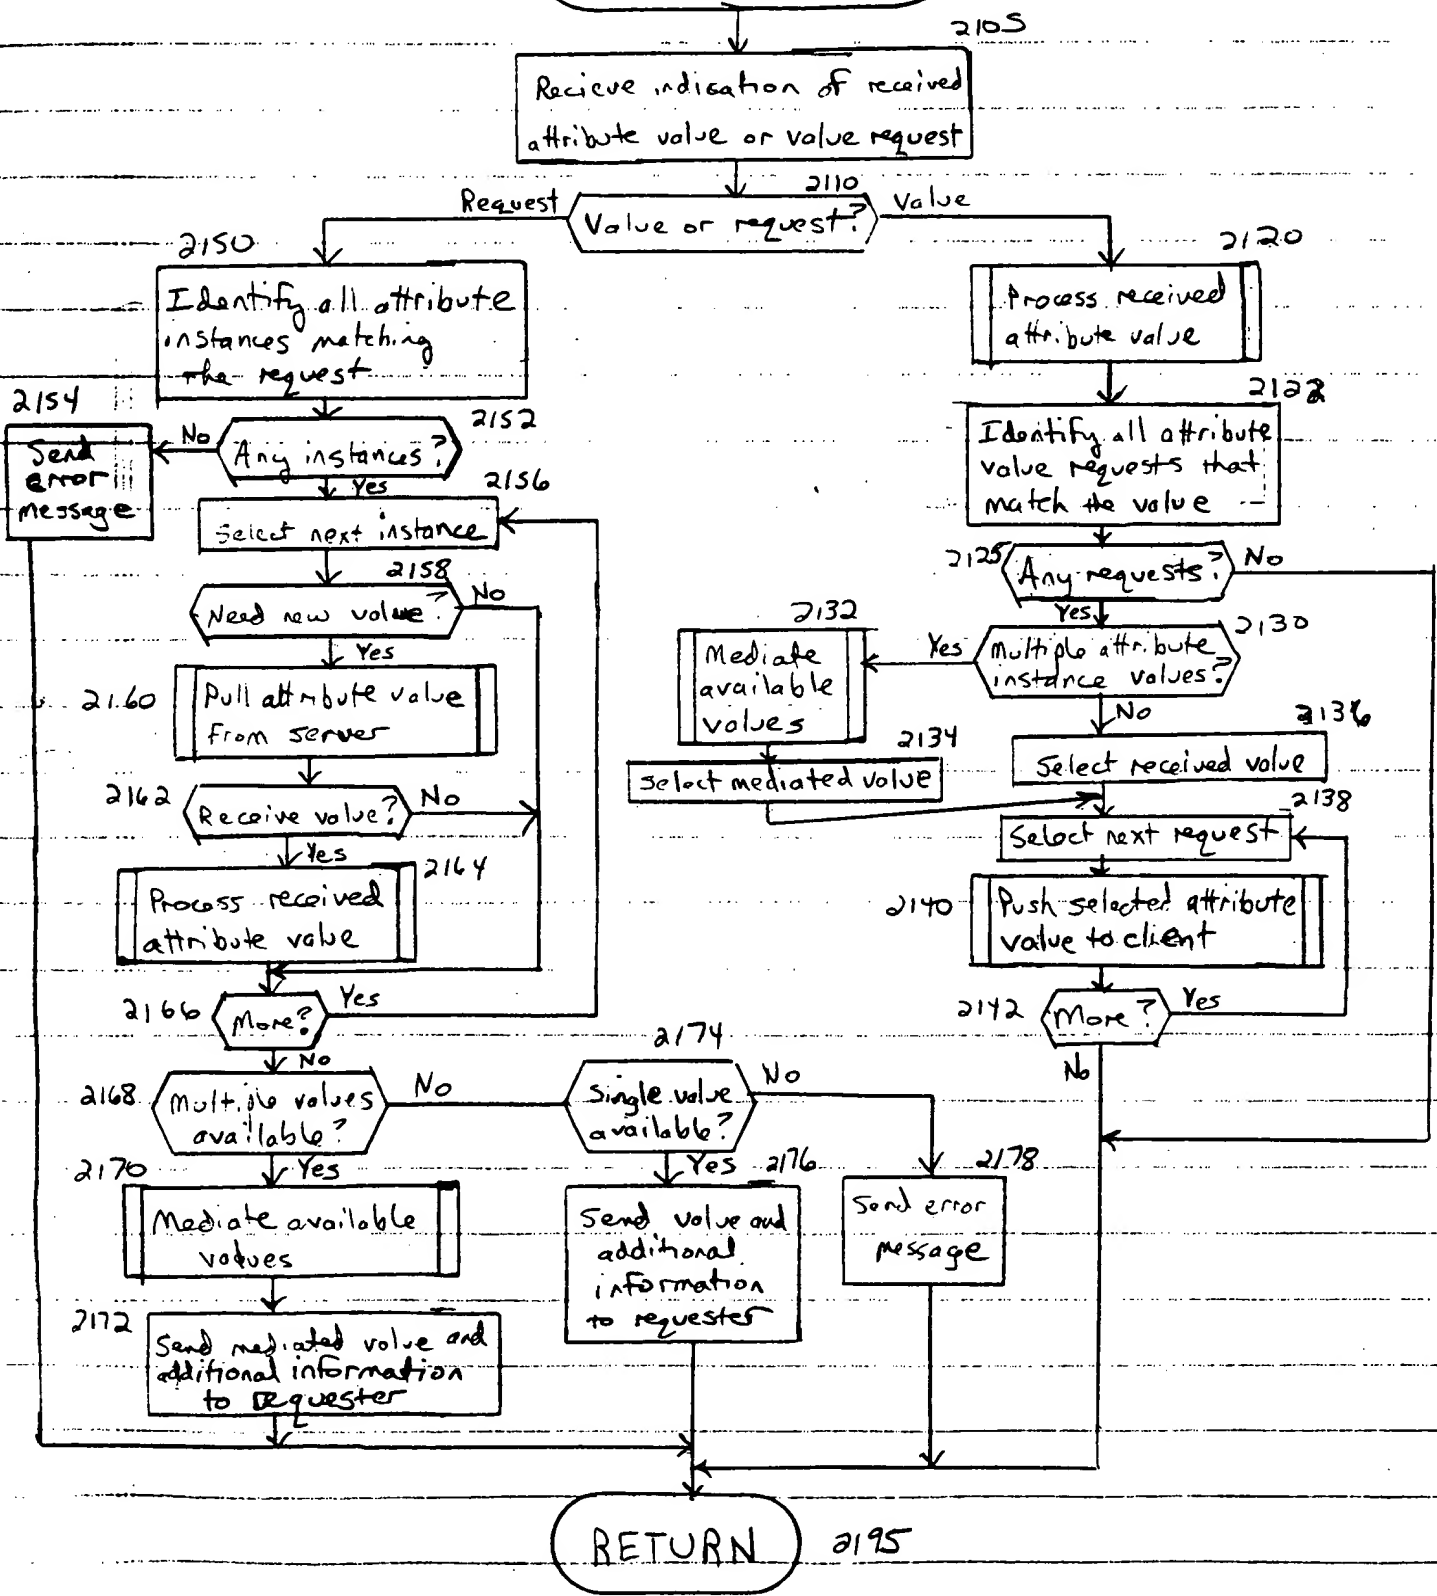 2105
Recieve indication of received
attribute value or value request
2110
Request
Value or request?
Value
2150
Identify all attribute
instances matching
the request
2152
Any instances?
No
2154
Send
error
message
Yes
2156
Select next instance
2158
Need new value?
No
Yes
2160
Pull attribute value
from server
2162
Receive value?
No
Yes
2164
Process received
attribute value
2166
More?
Yes
No
2168
Multiple values
available?
No
Yes
2170
Mediate available
values
2172
Send mediated value and
additional information
to requester
2174
Single value
available?
No
Yes
2176
Send value and
additional
information
to requester
2178
Send error
message
2120
Process received
attribute value
2122
Identify all attribute
value requests that
match the value
2125
Any requests?
No
Yes
2130
Multiple attribute
instance values?
Yes
2132
Mediate
available
values
2134
Select mediated value
No
2136
Select received value
2138
Select next request
2140
Push selected attribute
value to client
2142
More?
Yes
No
RETURN
2195